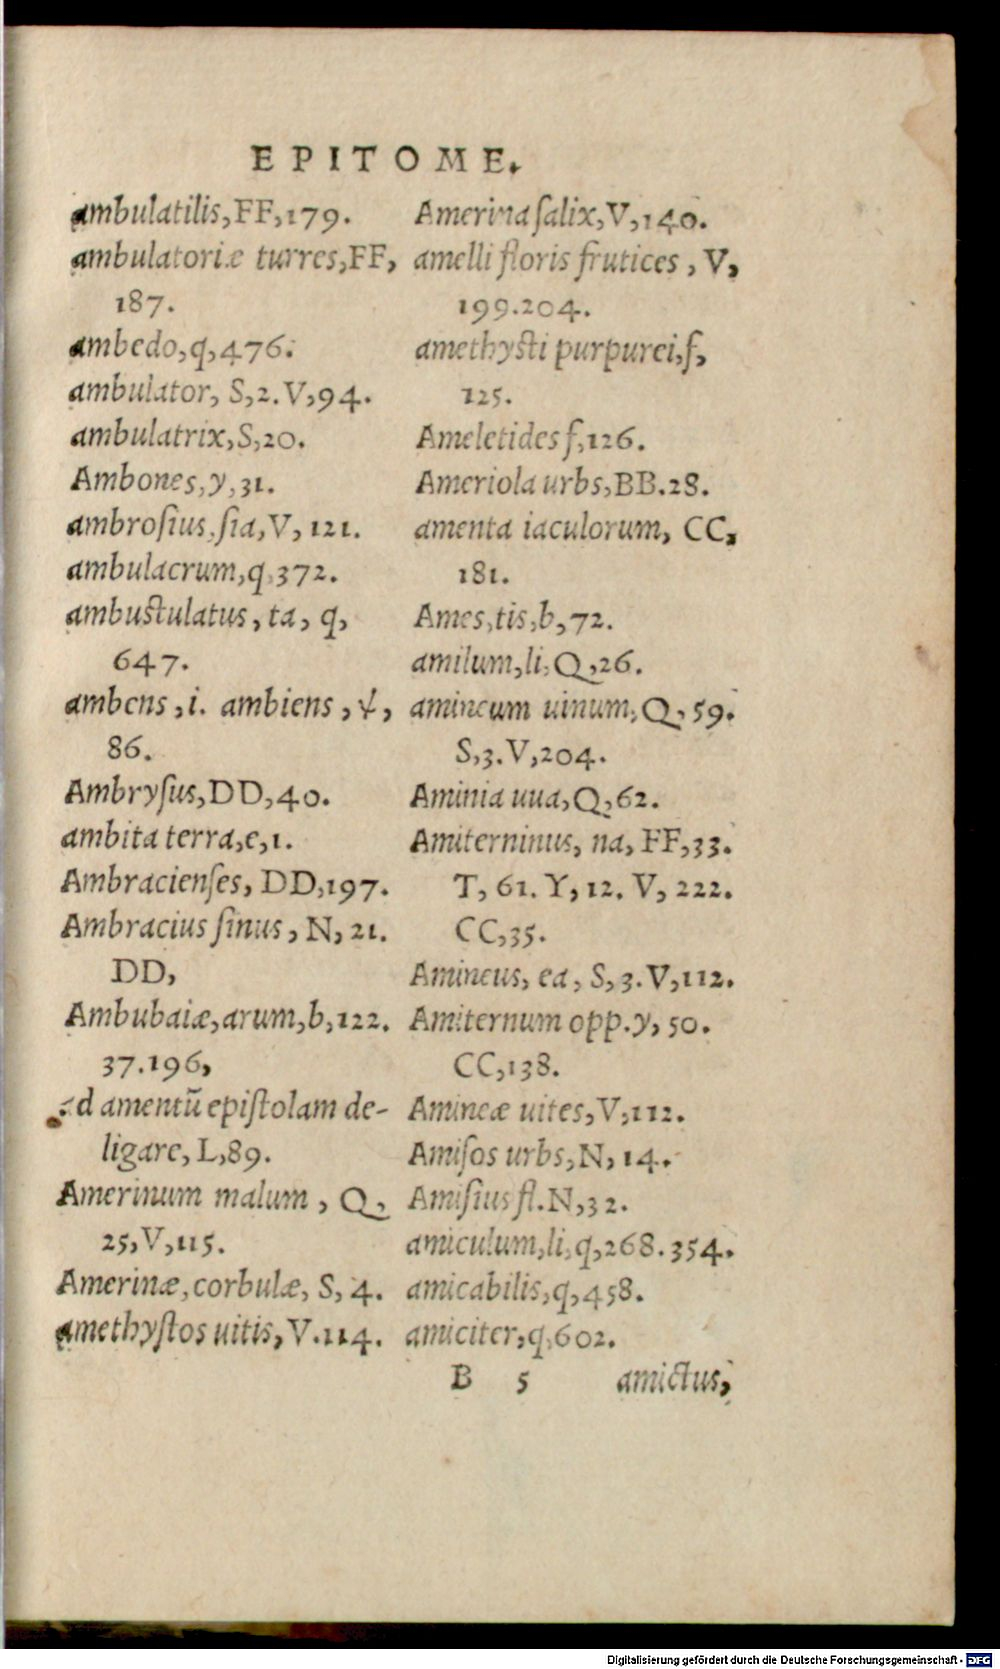 EPITOME.
ambulatilis, FF, 179.
ambulatoriæ turres, FF,
187.
ambedo, q, 476.
ambulator, S, 2. V, 94.
ambulatrix, S, 20.
Ambones, y, 31.
ambroſius, ſia, V, 121.
ambulacrum, q, 372.
ambuſtulatus, ta, q,
647.
ambens, i. ambiens, ٧,
86.
Ambryſus, DD, 40.
ambita terra, e, 1.
Ambracienſes, DD, 197.
Ambracius ſinus, N, 21.
DD,
Ambubaiæ, arum, b, 122.
37.196,
ad amentū epiſtolam de-
ligare, L, 89.
Amerinum malum, Q,
25, V, 115.
Amerinæ, corbulæ, S, 4.
amethyſtos uitis, V. 114.
Amerina ſalix, V, 140.
amelli floris frutices, V,
199.204.
amethyſti purpurei, ſ,
125.
Ameletides ſ, 126.
Ameriola urbs, BB. 28.
amenta iaculorum, CC,
181.
Ames, tis, b, 72.
amilum, li, Q, 26.
amineum uinum, Q, 59.
S, 3. V, 204.
Aminia uua, Q, 62.
Amiterninus, na, FF, 33.
T, 61. Y, 12. V, 222.
CC, 35.
Amineus, ea, S, 3. V, 112.
Amiternum opp. y, 50.
CC, 138.
Amineæ uites, V, 112.
Amiſos urbs, N, 14.
Amiſius fl. N, 32.
amiculum, li, q, 268. 354.
amicabilis, q, 458.
amiciter, q, 602.
B 5 amictus,
Digitalisierung gefördert durch die Deutsche Forschungsgemeinschaft - DFG